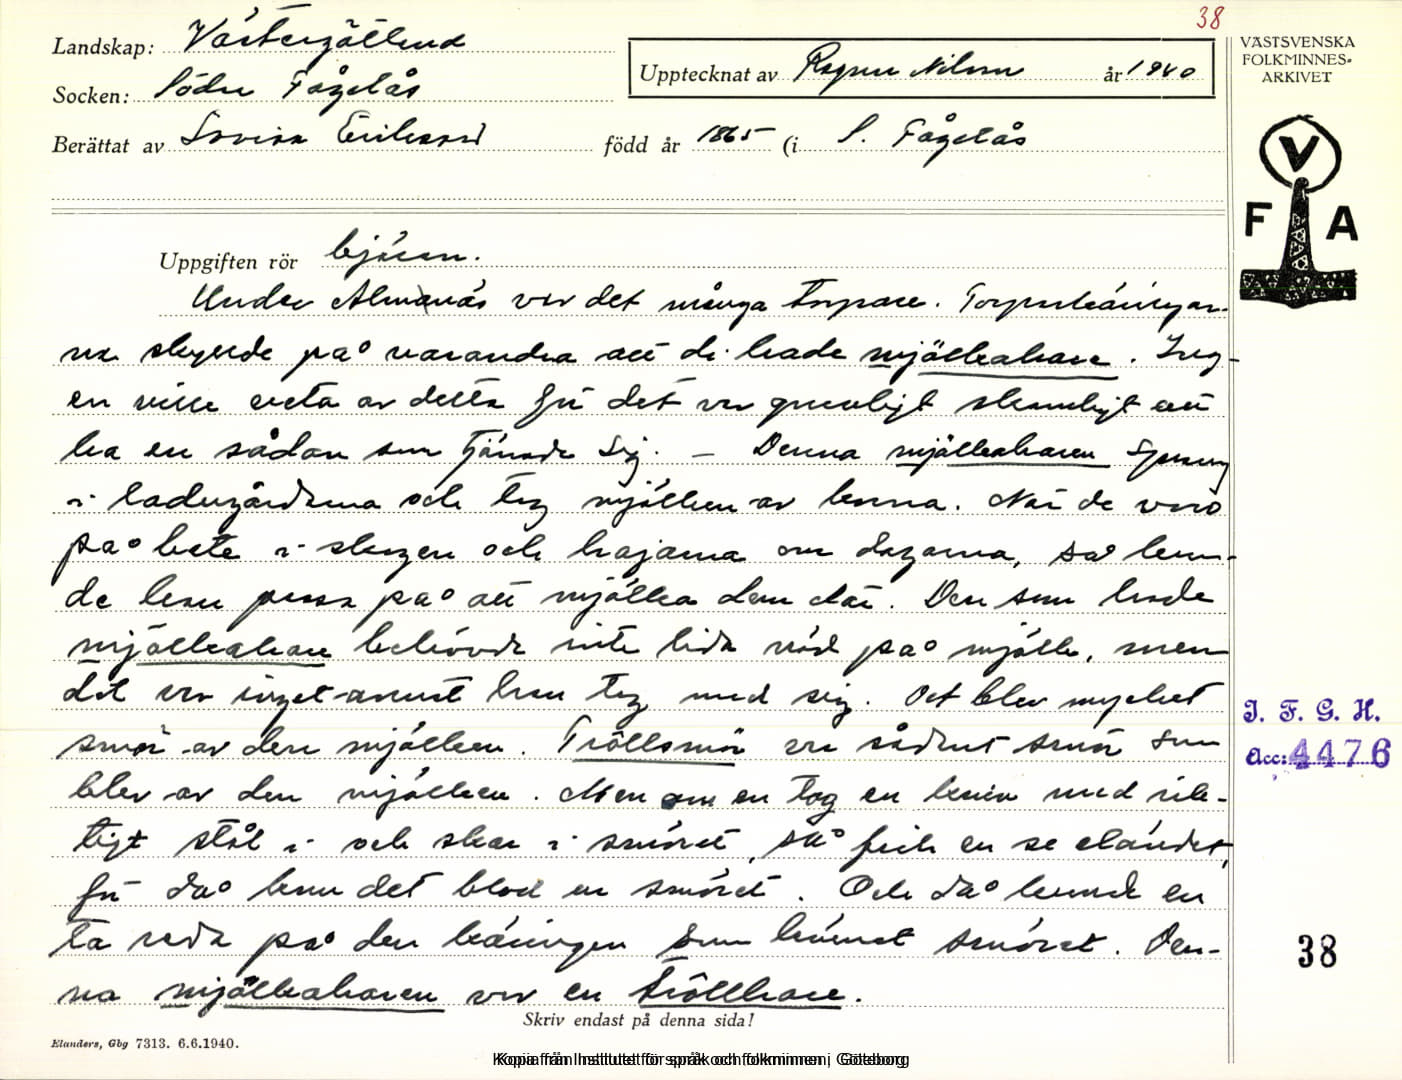 38
Landskap: Västergötland
Socken: Södra Fågelås
Upptecknat av Ragnar Nilsson år 1940
VÄSTSVENSKA
FOLKMINNES-
ARKIVET
Berättat av Lovisa Eriksson född år 1865 (i S. Fågelås
V
F A
Uppgiften rör bjäran.
Under Almanäs var det många torpare. Torparkäringar-
na skyllde på varandra att di hade mjölkahare. Ing-
en ville veta av detta för det var gruvligt skamligt att
ha en sådan som tjänade sig. – Denna mjölkaharen sprang
i ladugårdarna och tog mjölken av korna. När de voro
på bete i skogen och hagarna om dagarna, så kun-
de han passa på att mjölka dem där. Den som hade
mjölkahare behövde inte lida nöd på mjölk, men
det var inget annat han tog med sig. Det blev mycket
smör av den mjölken. Tröllsmör var sådant smör som
blev av den mjölken. Men om en tog en kniv med rik-
tigt stål i och skar i smöret, så fick en se eländet,
för då kom det blod ur smöret. Och då kunde en
ta reda på den käringen som kärnat smöret. Den-
na mjölkaharen var en tröllhare.
J. F. G. H.
Acc: 4476
38
Skriv endast på denna sida!
Elanders, Gbg 7313. 6.6.1940.
Kopia från Institutet för språk och folkminnen, Göteborg